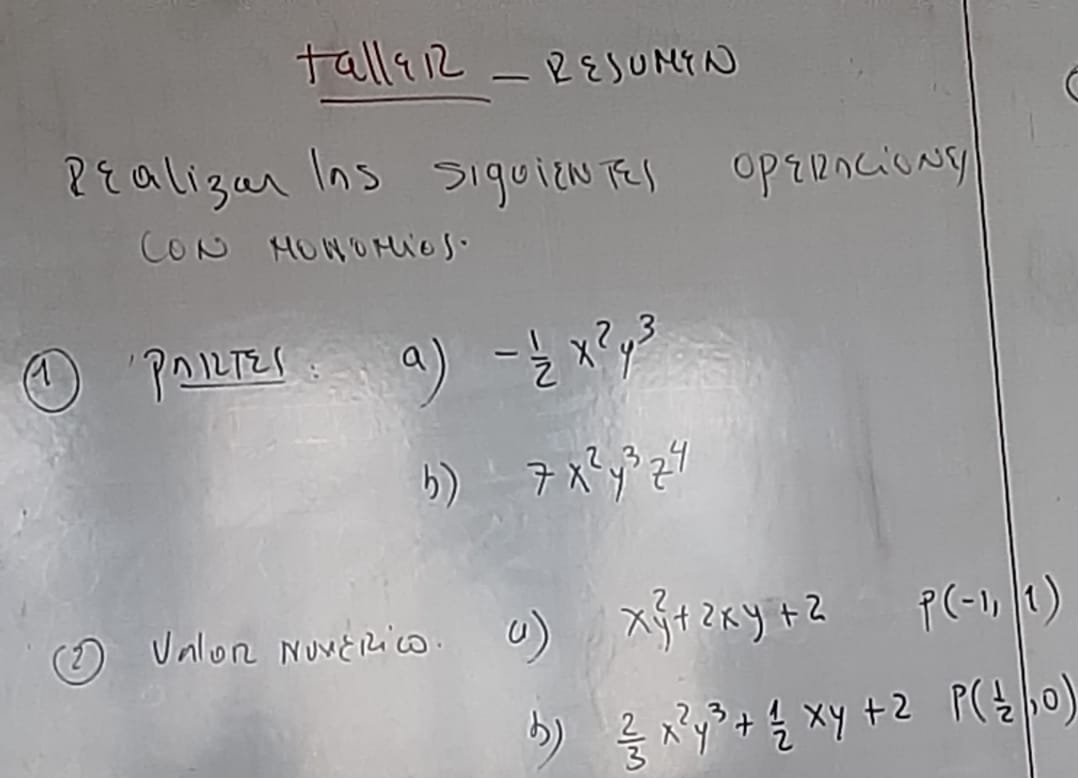 taller - RESUMEN
Realizar las siguientes operaciones
con monomios.
① Partes: a) -1/2 x²y³
b) 7x²y³z⁴
② Valor numérico. a) x²y+2xy+2 P(-1, 1)
b) 2/3 x²y³+1/2 xy+2 P(1/2, 0)